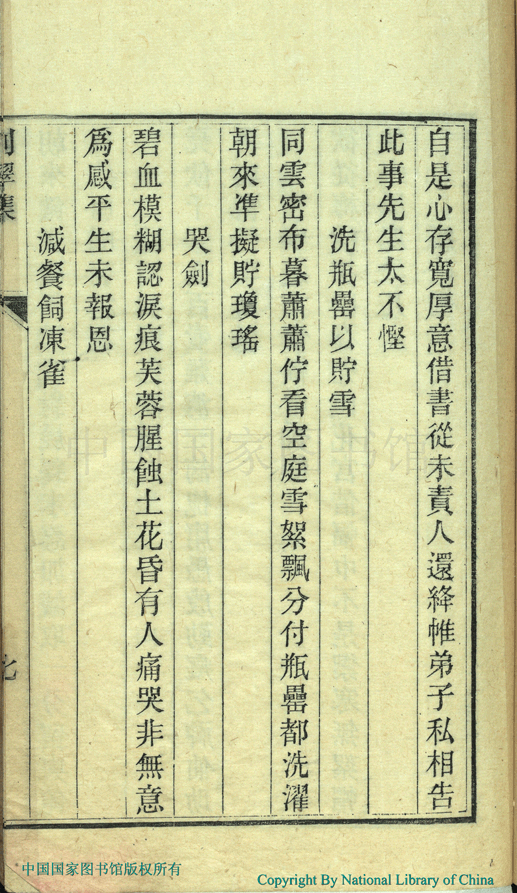 自是心存寬厚意借書從未責人還絳帷弟子私相告
此事先生太不慳
洗瓶罍以貯雪
同雲密布暮蕭蕭佇看空庭雪絮飄分付瓶罍都洗濯
朝來準擬貯瓊瑤
哭劍
碧血模糊認淚痕芙蓉腥蝕土花昏有人痛哭非無意
為感平生未報恩
減餐飼凍雀
集
七
中国国家图书馆版权所有
Copyright By National Library of China